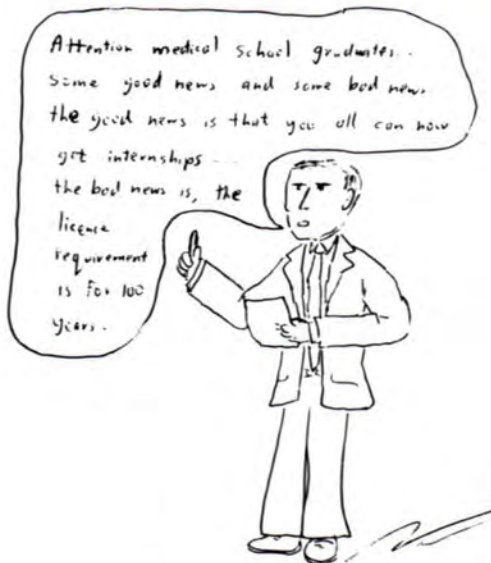 Attention medical school graduates...
Some good news and some bad news.
the good news is that you all can now
get internships ...
the bad news is, the
licence
requirement
is for 100
years.